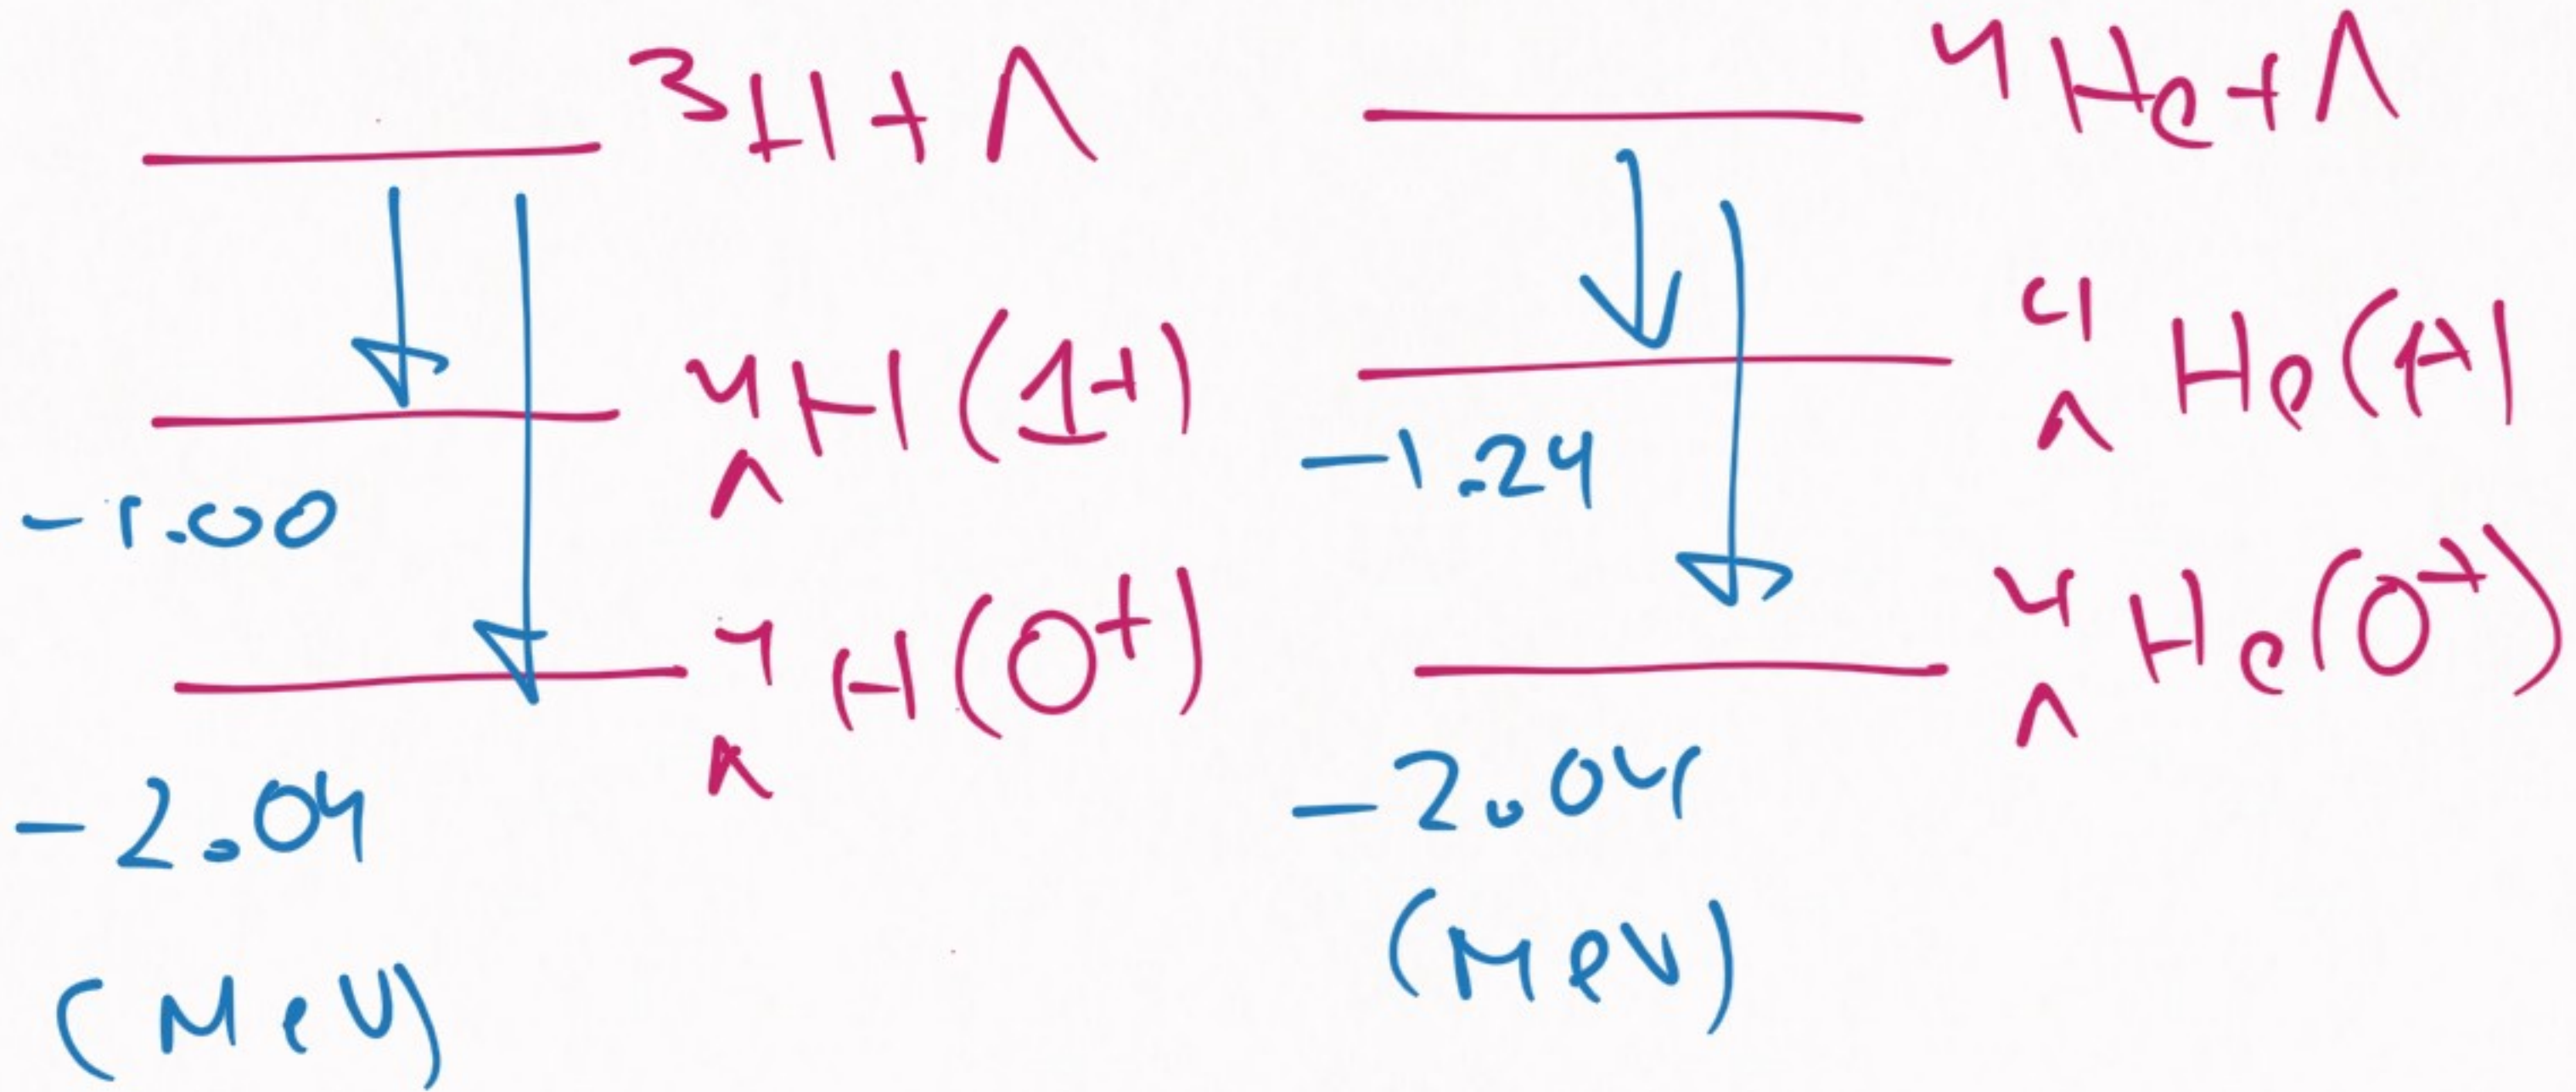 ³H + Λ
⁴ΛH (1⁺)
-1.00
⁴ΛH (0⁺)
-2.04
(MeV)
⁴He + Λ
⁴ΛHe (1⁺)
-1.24
⁴ΛHe (0⁺)
-2.04
(MeV)